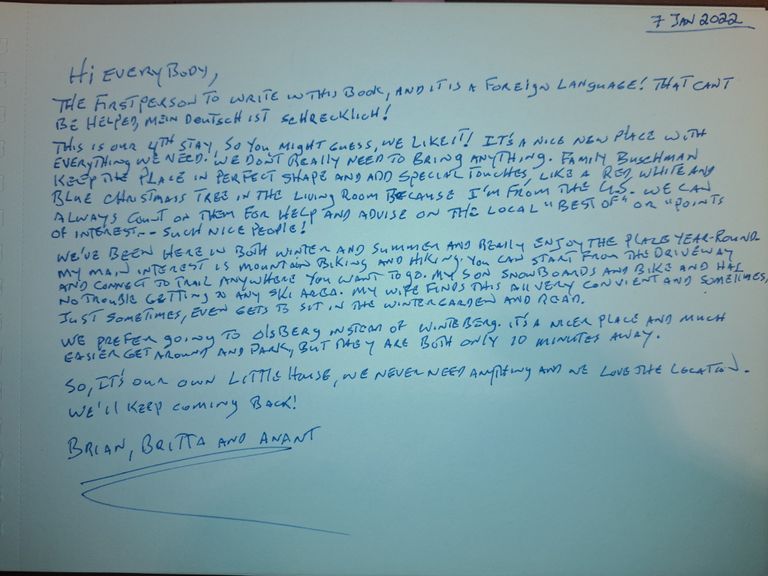 7 JAN 2022
Hi EVERYBODY,
THE FIRST PERSON TO WRITE IN THIS BOOK, AND IT IS A FOREIGN LANGUAGE! THAT CAN'T
BE HELPED, MEIN DEUTSCH IST SCHRECKLICH!
THIS IS OUR 4TH STAY, SO YOU MIGHT GUESS, WE LIKE IT! IT'S A NICE NEW PLACE WITH
EVERYTHING WE NEED. WE DON'T REALLY NEED TO BRING ANYTHING. FAMILY BUSCHMAN
KEEP THE PLACE IN PERFECT SHAPE AND ADD SPECIAL TOUCHES, LIKE A RED, WHITE AND
BLUE CHRISTMAS TREE IN THE LIVING ROOM BECAUSE I'M FROM THE U.S. WE CAN
ALWAYS COUNT ON THEM FOR HELP AND ADVISE ON THE LOCAL "BEST OF" OR "POINTS
OF INTEREST-- SUCH NICE PEOPLE!
WE'VE BEEN HERE IN BOTH WINTER AND SUMMER AND REALLY ENJOY THE PLACE YEAR-ROUND
MY MAIN INTEREST IS MOUNTAIN BIKING AND HIKING. YOU CAN START FROM THE DRIVEWAY
AND CONNECT TO TRAIL ANYWHERE YOU WANT TO GO. MY SON SNOWBOARDS AND BIKE AND HAS
NO TROUBLE GETTING TO ANY SKI AREA. MY WIFE FINDS THIS ALL VERY CONVIENT AND SOMETIMES,
JUST SOMETIMES, EVEN GETS TO SIT IN THE WINTERGARDEN AND READ.
WE PREFER GOING TO OLSBERG INSTEAD OF WINTERBERG. IT'S A NICER PLACE AND MUCH
EASIER GET AROUND AND PARK, BUT THEY ARE BOTH ONLY 10 MINUTES AWAY.
SO, IT'S OUR OWN LITTLE HOUSE, WE NEVER NEED ANYTHING AND WE LOVE THE LOCATION.
WE'LL KEEP COMING BACK!
BRIAN, BRITTA AND ANANT